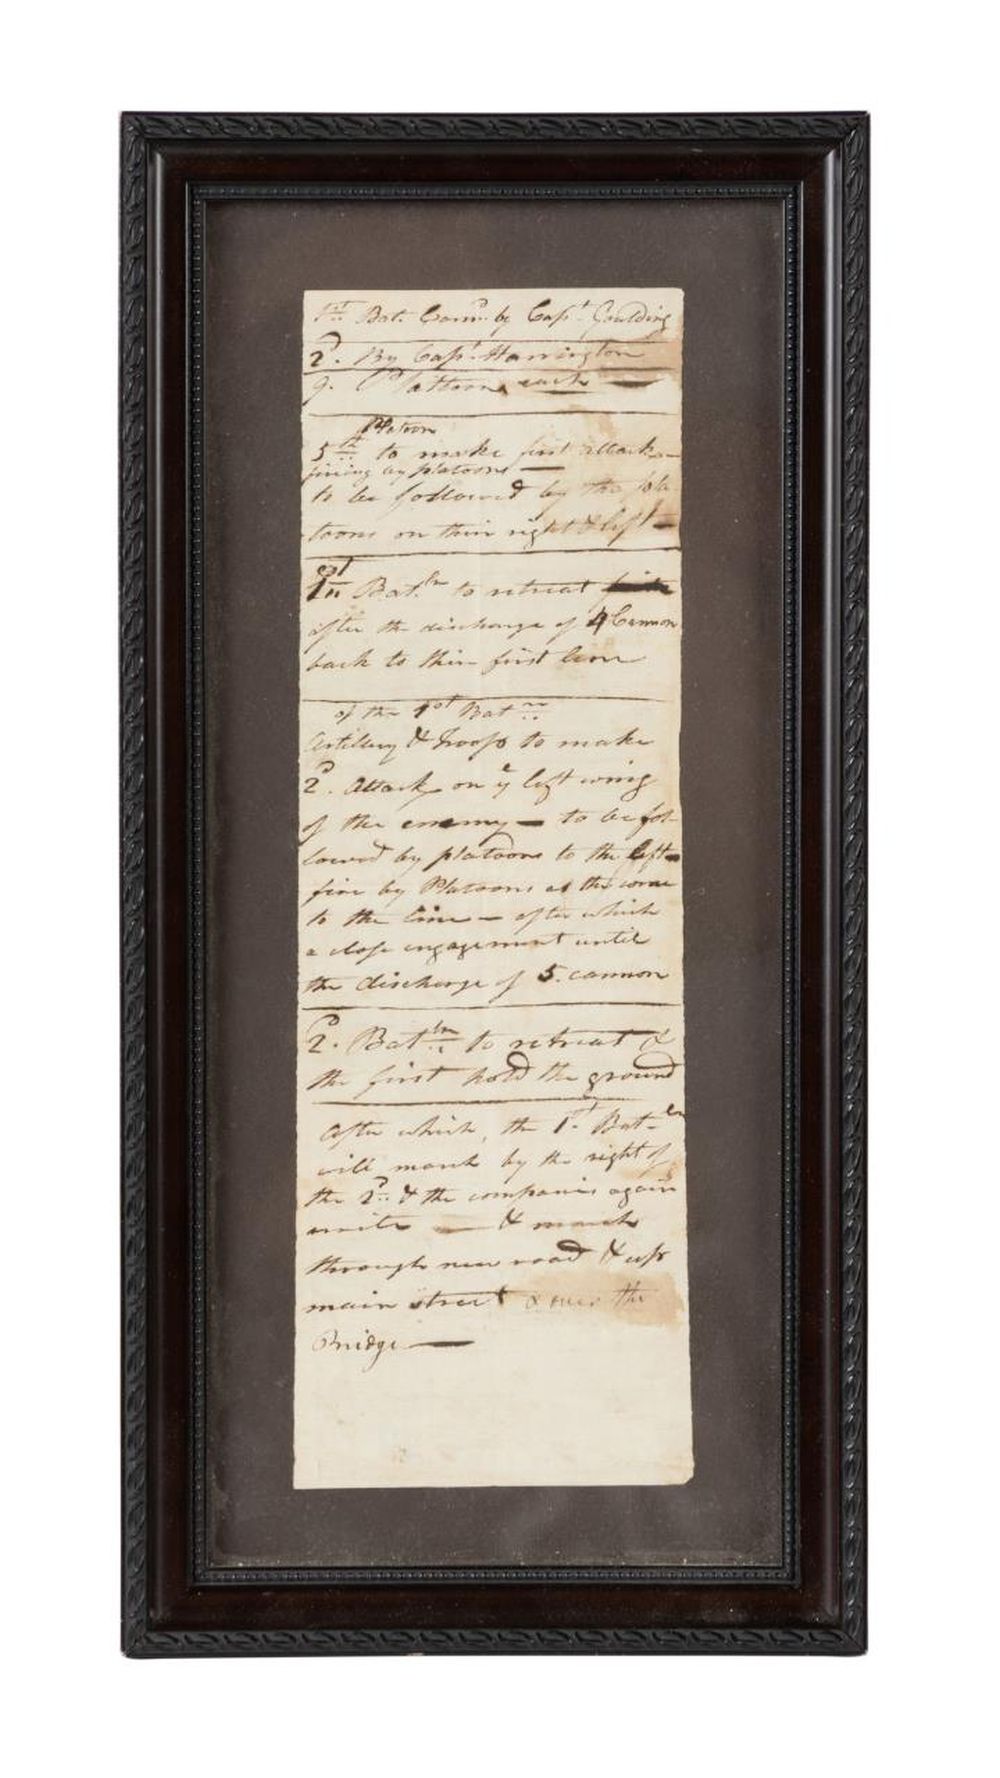 1st Bat. Comd. by Capt. Goulding
2d. By Capt. Harrington
9. Platoons each —
Platoon
5th to make first attack —
firing by platoons —
to be followed by the pla
toons on their right & left —
1st Batln to retreat
after the discharge of 4 Cannon
back to their first line
of the 1st Batn
Artillery & Troops to make
2d. Attack on ye left wing
of the enemy — to be fol-
lowed by platoons to the left —
fire by Platoons as the come
to the line — after which
a close engagement until
the discharge of 5. cannon
2d. Batln to retreat &
the first hold the ground
After which, the 1st. Batln
will march by the right of
the 2d & the companies again
unite — & march
through new road & up
main street & over the
Bridge —